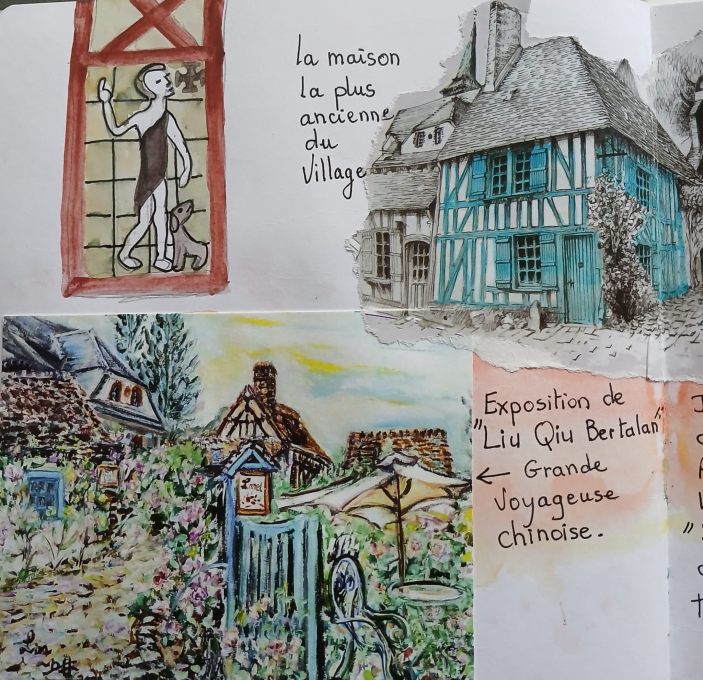 la maison
la plus
ancienne
du
Village
Exposition de
"Liu Qiu Bertalan"
← Grande
Voyageuse
chinoise.